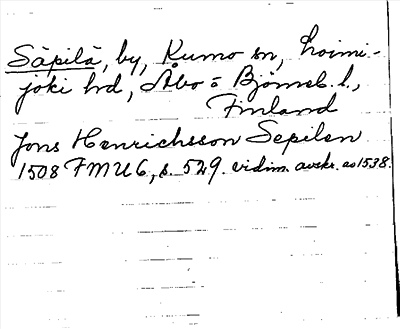 Säpilä, by, Kumo sn, Loimi-
joki hrd, Åbo o Björneb. l.,
Finland
Jons Henrichsson Sepilen
1508 FMU 6, s. 529. vidim. avskr. av 1538.